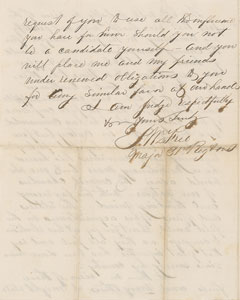 request of you to use all the influence
you have for him should you not
be a candidate yourself - and you
will place me and my friends
under renewed obligations to you
for any similar favor at our hands
I am Judge respectfully
Yours Truly
Major 31st Reg